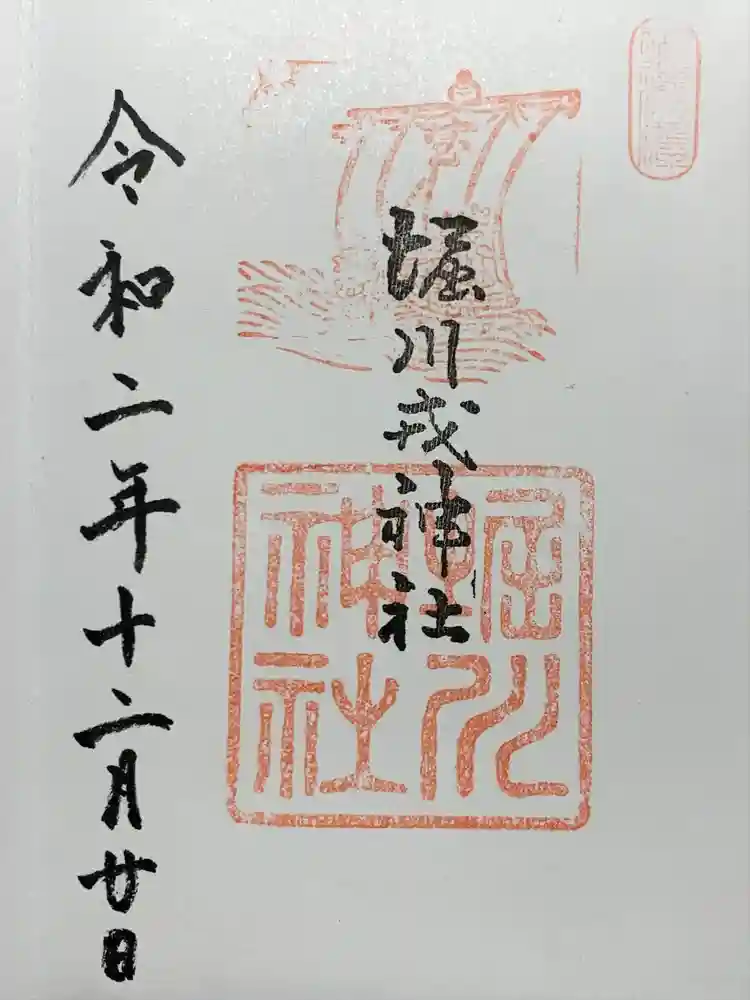 堀川戎神社
令和二年十二月廿日
宝
堀川
神社